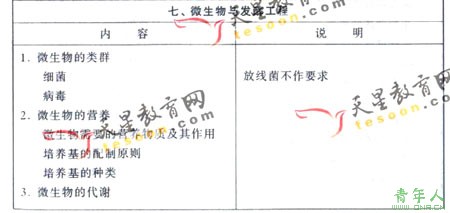 七、微生物与发酵工程
内 容 说 明
1. 微生物的类群
细菌 放线菌不作要求
病毒
2. 微生物的营养
微生物需要的营养物质及其作用
培养基的配制原则
培养基的种类
3. 微生物的代谢
天星教育网
tesoon.com
天星教育网
tesoon.com
天星教育网
tesoon.com
青年人